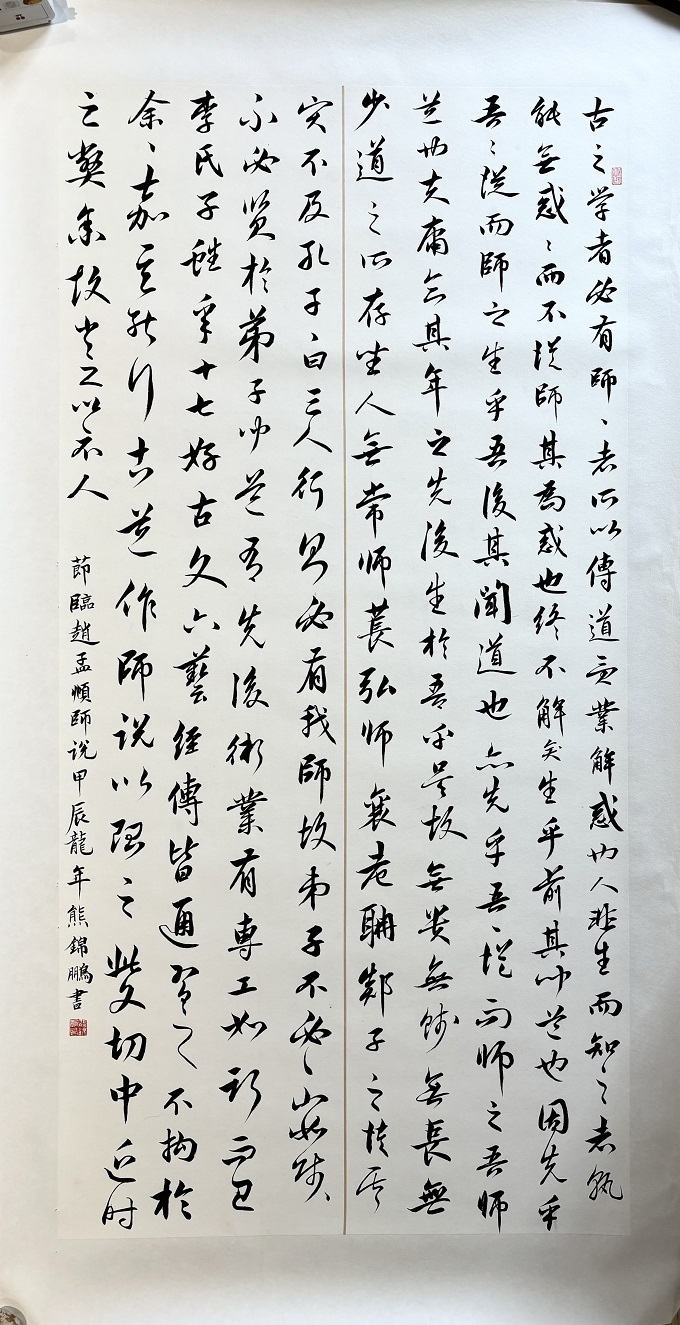 古之学者必有師、者所以傳道受業解惑也人非生而知之者孰
能無惑、而不從師其為惑也終不解矣生乎前其聞道也固先乎
吾、從而師之生乎吾後其聞道也亦先乎吾、從而師之吾師
道也夫庸知其年之先後生於吾乎是故無貴無賤無長無
少道之所存聖人無常師萇弘師襄老聃郯子之徒其
賢不及孔子、曰三人行則必有我師故弟子不必、如師、
不必賢於弟子聞道有先後術業有專工如斯而已
李氏子蟠年十七好古文六藝經傳皆通習之不拘於
余、嘉其能行古道作師说以貽之此文切中近时
之弊余故書之以示人
節臨趙孟頫師说甲辰龍年熊錦鵬書